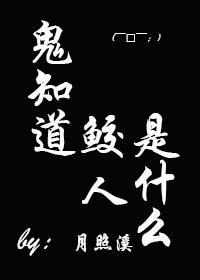 (￣□￣；)
鬼知道
鲛人
是什么
by：月照溪